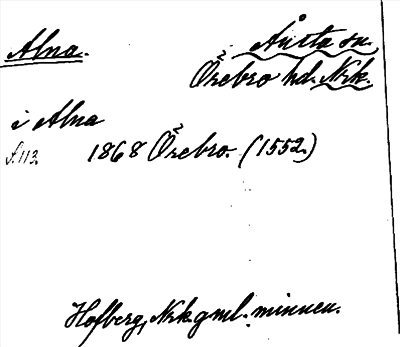 Alna. Ånsta sn.
Örebro hd. Nrk.
i Alna
s. 113. 1868 Örebro. (1552.)
Hofberg, Nrk. gml. minnen.